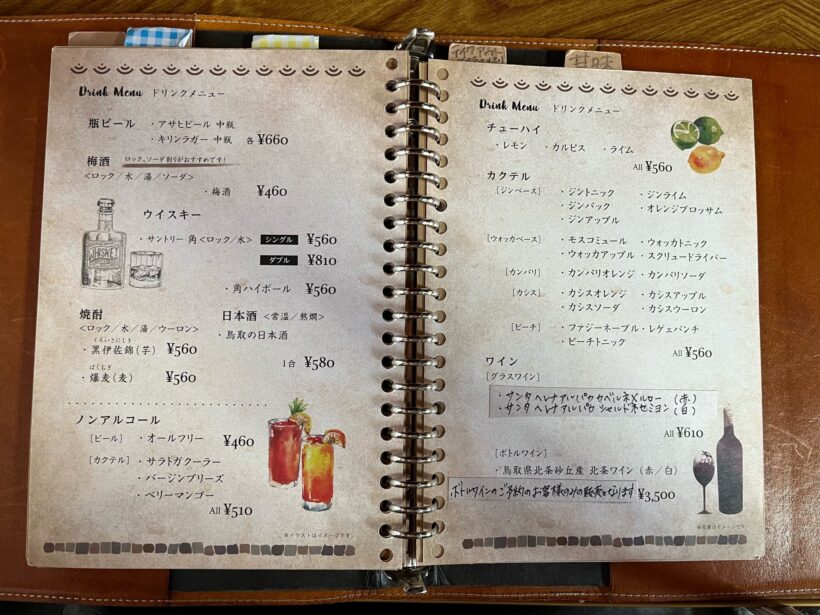 アイスアンドー
甘味
Drink Menu ドリンクメニュー
瓶ビール ・アサヒビール 中瓶
・キリンラガー 中瓶 各 ¥660
梅酒 ロック、ソーダ割りがおすすめです！
<ロック／水／湯／ソーダ>
・梅酒 ¥460
ウイスキー
・サントリー 角 <ロック／水> シングル ¥560
ダブル ¥810
・角ハイボール ¥560
WHISKEY
焼酎
<ロック／水／湯／ウーロン>
くろいさにしき
・黒伊佐錦（芋） ¥560
ばくむぎ
・爆麦（麦） ¥560
日本酒 <常温／熱燗>
・鳥取の日本酒
1合 ¥580
ノンアルコール
[ビール] ・オールフリー ¥460
[カクテル] ・サラトガクーラー
・バージンブリーズ
・ベリーマンゴー
All ¥510
※イラストはイメージです。
Drink Menu ドリンクメニュー
チューハイ
・レモン ・カルピス ・ライム
All ¥560
カクテル
[ジンベース] ・ジントニック ・ジンライム
・ジンバック ・オレンジブロッサム
・ジンアップル
[ウォッカベース] ・モスコミュール ・ウォッカトニック
・ウォッカアップル ・スクリュードライバー
[カンパリ] ・カンパリオレンジ ・カンパリソーダ
[カシス] ・カシスオレンジ ・カシスアップル
・カシスソーダ ・カシスウーロン
[ピーチ] ・ファジーネーブル ・レゲエパンチ
・ピーチトニック
All ¥560
ワイン
[グラスワイン]
・サンタ ヘレナ アルパカ カベルネメルロー （赤）
・サンタ ヘレナ アルパカ シャルドネセミヨン （白）
All ¥610
[ボトルワイン]
・鳥取県北条砂丘産 北条ワイン（赤／白）
ボトルワインのご予約のお客様のみの販売となります ¥3,500
※写真はイメージです。